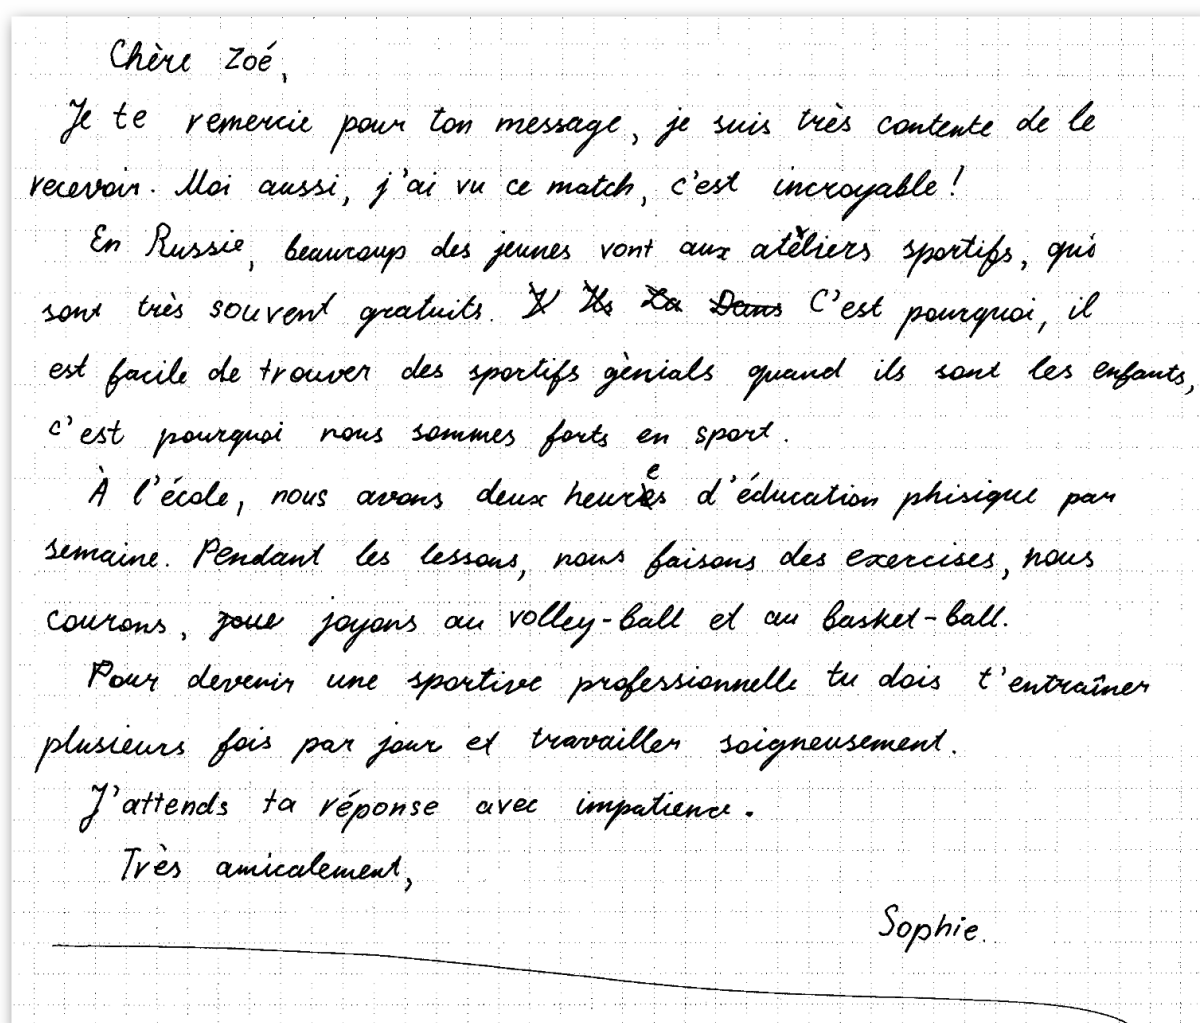 Chère Zoé,
Je te remercie pour ton message, je suis très contente de le
recevoir. Moi aussi, j'ai vu ce match, c'est incroyable!
En Russie, beaucoup des jeunes vont aux atèliers sportifs, qui
sont très souvent gratuits. C'est pourquoi, il
est facile de trouver des sportifs gènials quand ils sont les enfants,
c'est pourquoi nous sommes forts en sport.
À l'école, nous avons deux heures d'éducation phisique par
semaine. Pendant les lessons, nous faisons des exercises, nous
courons, joue joyons au volley-ball et au basket-ball.
Pour devenir une sportive professionnelle tu dois t'entraîner
plusieurs fois par jour et travailler soigneusement.
J'attends ta réponse avec impatience.
Très amicalement,
Sophie.